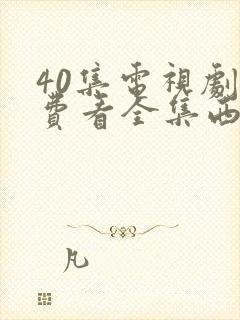 40集電視劇
費看全集西
凡